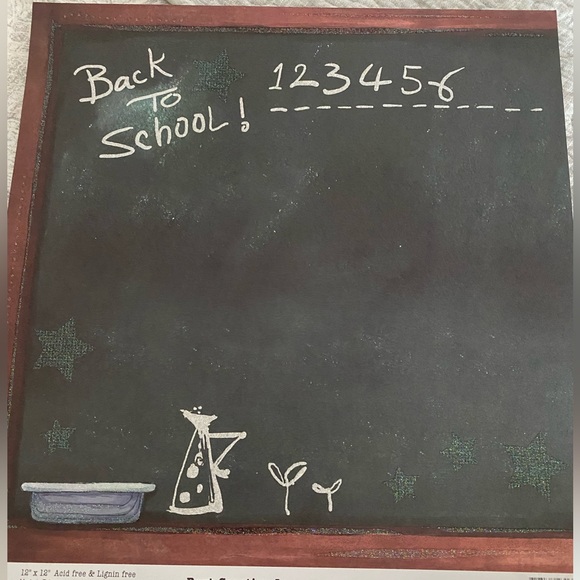 Back
To
School!
1 2 3 4 5 6
12" x 12" Acid free & Lignin free